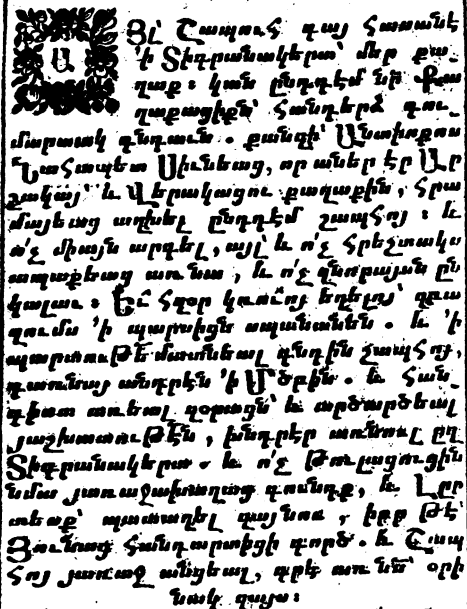 ԱՅլ Շապուհ գայ հասանէ
՚ի Տիգրանակերտ՝ մեր քա֊
ղաք : կան ընդդէմ նր քա
ղաքացիքն՝ հանդերձ գու֊
մարտակ գնդաւն . քանզի՝ Անտիոքոս
Նահապետ Սիւնեաց, որ աներ էր Ար
շակայ՝ և վերակացու քաղաքին, հրա
մայեաց աղխել ընդդէմ շապհոյ : և
ո՛չ միայն արգել, այլ՝ և ո՛չ հրեշտակս
առաքեաց առ նա, և ո՛չ զնորայսն ըն
կալաւ : Եւ հզօր կռուոյ եղելոյ՝ զբա
զումս ՚ի պարսիցն սպանանեն . և ՚ի
պարտութի մատնեալ գնդին շապհոյ,
դառնայ անդրէն ՚ի Մծբին . և հան֊
գիստ առեալ զօրացն՝ և արծարծեալ
յաշխատութէն, խնդրէր առնուլ ըզ
Տիգրանակերտ . և ո՛չ թուլացուցին
նմա յառաջախաղաց գունդք, և Լըր
տեսք՝ պատաղել զայնու, իբր թէ՝
Յունաց հանդարտիցի գործ . և Շապ
հոյ յառաջ անցեալ, գրէ առ նոսա՝ օրի
նակ զայս :